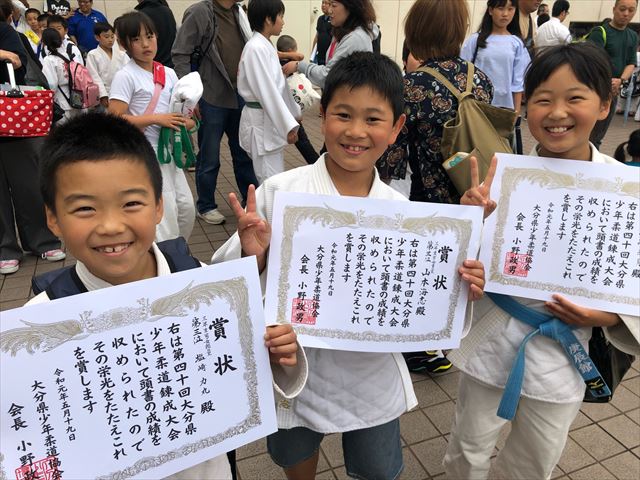 賞状
第三位 塩﨑 力丸 殿
右は第四十回大分県
少年柔道錬成大会
において頭書の成績を
収められたので
その栄光をたたえこれ
を賞します
令和元年五月十九日
大分県少年柔道協会
会長 小野政男
賞状
殿
右は第四十回大分県
少年柔道錬成大会
において頭書の成績を
収められたので
その栄光をたたえこれ
を賞します
令和元年五月十九日
大分県少年柔道協会
会長 小野政男
右は第四十回大分県
少年柔道錬成大会
において頭書の成績を
収められたので
その栄光をたたえこれ
を賞します
令和元年五月十九日
大分県少年柔道協会
会長 小野政男